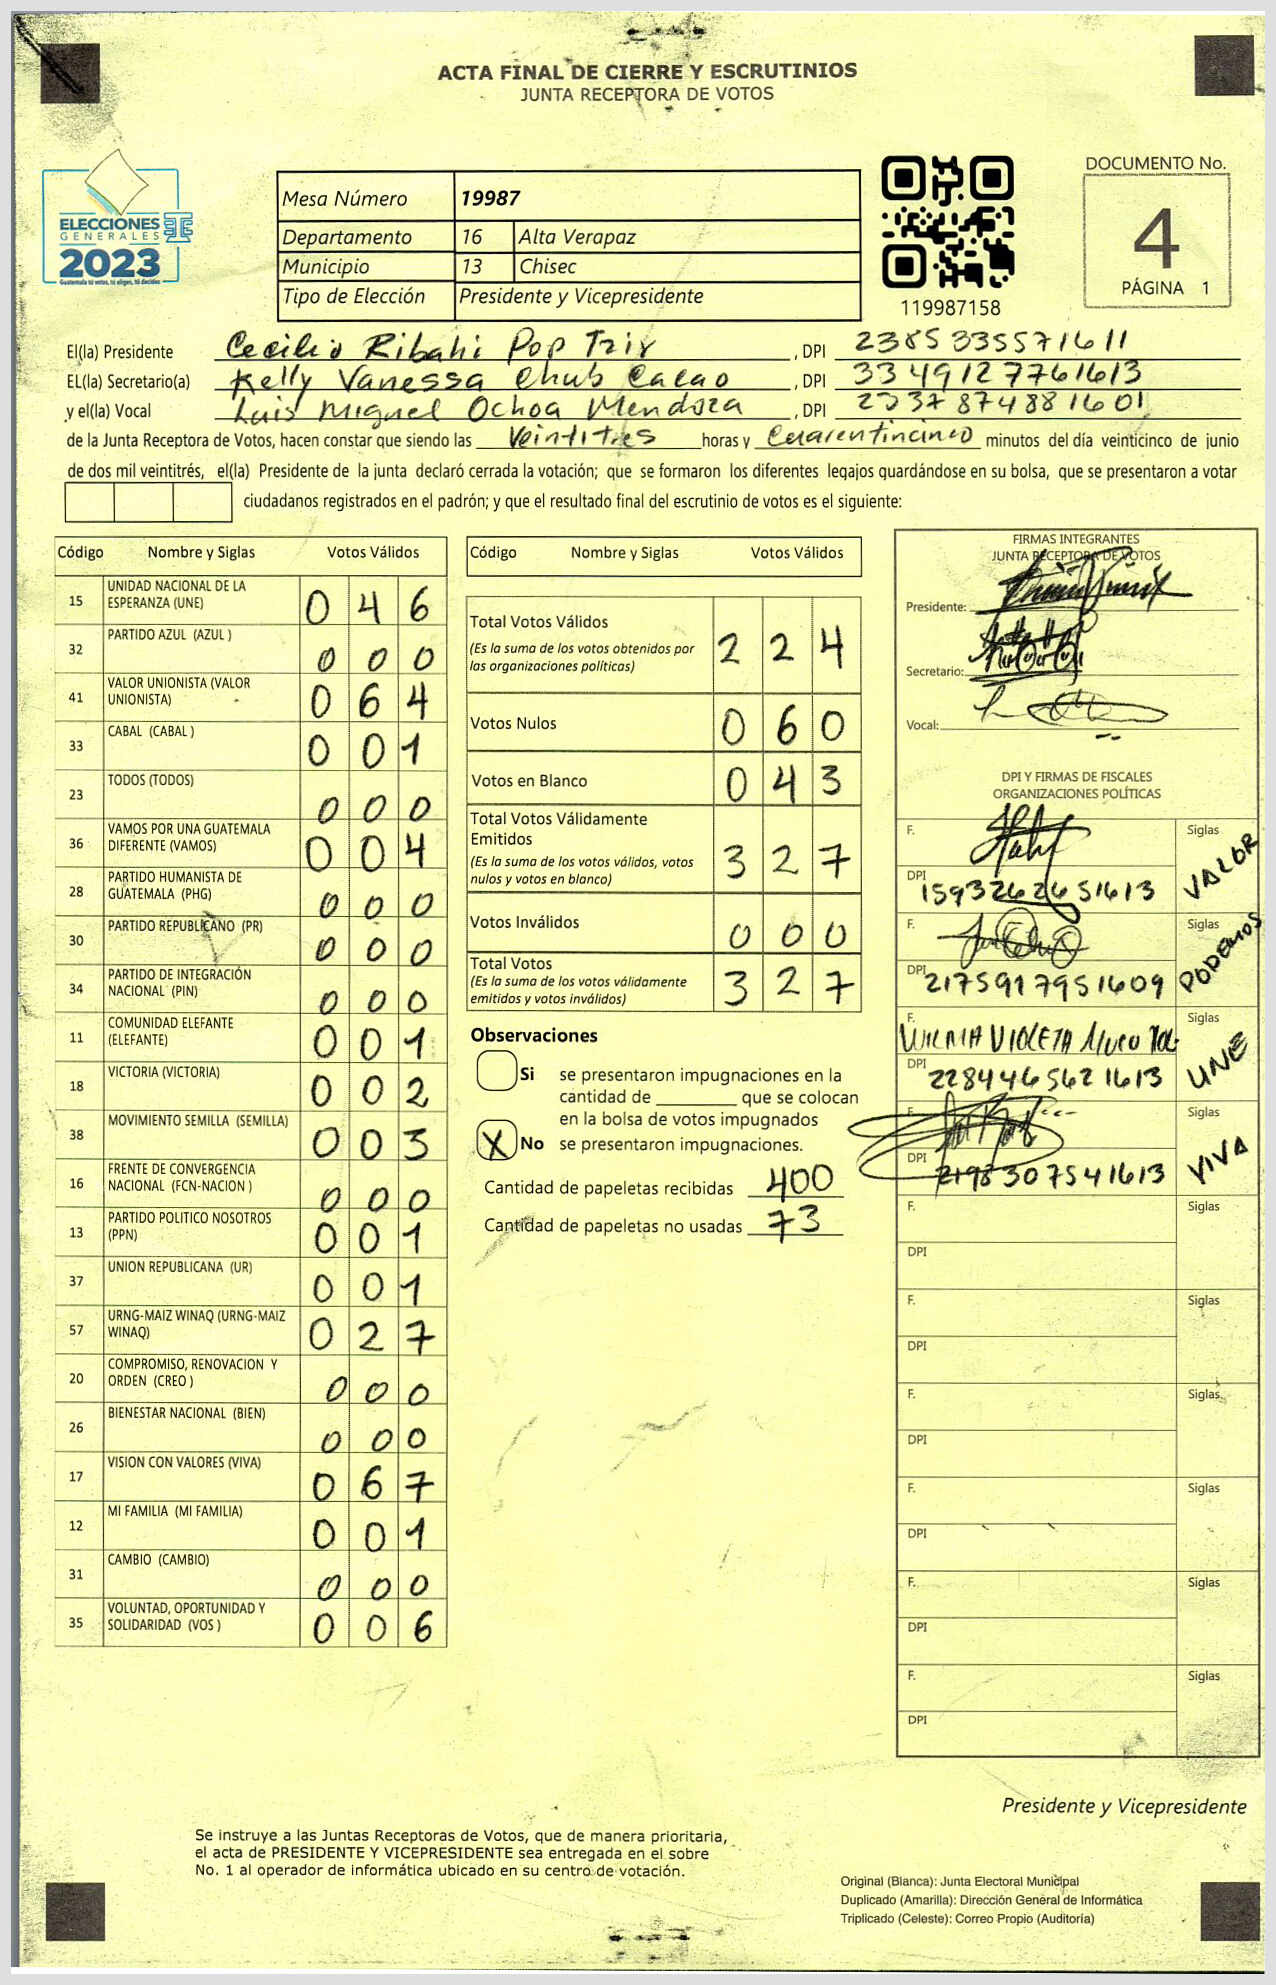 ACTA FINAL DE CIERRE Y ESCRUTINIOS
JUNTA RECEPTORA DE VOTOS
ELECCIONES
GENERALES
2023
Guatemala tú votas, tú eliges, tú decides
Mesa Número 19987
Departamento 16 Alta Verapaz
Municipio 13 Chisec
Tipo de Elección Presidente y Vicepresidente
119987158
DOCUMENTO No.
4
PÁGINA 1
El(la) Presidente Cecilio Ribahi Pop Tzir, DPI 2385335571611
EL(la) Secretario(a) Kelly Vanessa Chub Cacao, DPI 3349127761613
y el(la) Vocal Luis Miguel Ochoa Mendoza, DPI 2337874881601
de la Junta Receptora de Votos, hacen constar que siendo las Veintitres horas y Cuarentincinco minutos del día veinticinco de junio
de dos mil veintitrés, el(la) Presidente de la junta declaró cerrada la votación; que se formaron los diferentes legajos quardándose en su bolsa, que se presentaron a votar
ciudadanos registrados en el padrón; y que el resultado final del escrutinio de votos es el siguiente:
Código Nombre y Siglas Votos Válidos
15 UNIDAD NACIONAL DE LA ESPERANZA (UNE) 0 4 6
32 PARTIDO AZUL (AZUL ) 0 0 0
41 VALOR UNIONISTA (VALOR UNIONISTA) 0 6 4
33 CABAL (CABAL ) 0 0 1
23 TODOS (TODOS) 0 0 0
36 VAMOS POR UNA GUATEMALA DIFERENTE (VAMOS) 0 0 4
28 PARTIDO HUMANISTA DE GUATEMALA (PHG) 0 0 0
30 PARTIDO REPUBLICANO (PR) 0 0 0
34 PARTIDO DE INTEGRACIÓN NACIONAL (PIN) 0 0 0
11 COMUNIDAD ELEFANTE (ELEFANTE) 0 0 1
18 VICTORIA (VICTORIA) 0 0 2
38 MOVIMIENTO SEMILLA (SEMILLA) 0 0 3
16 FRENTE DE CONVERGENCIA NACIONAL (FCN-NACION ) 0 0 0
13 PARTIDO POLITICO NOSOTROS (PPN) 0 0 1
37 UNION REPUBLICANA (UR) 0 0 1
57 URNG-MAIZ WINAQ (URNG-MAIZ WINAQ) 0 2 7
20 COMPROMISO, RENOVACION Y ORDEN (CREO ) 0 0 0
26 BIENESTAR NACIONAL (BIEN) 0 0 0
17 VISION CON VALORES (VIVA) 0 6 7
12 MI FAMILIA (MI FAMILIA) 0 0 1
31 CAMBIO (CAMBIO) 0 0 0
35 VOLUNTAD, OPORTUNIDAD Y SOLIDARIDAD (VOS ) 0 0 6
Código Nombre y Siglas Votos Válidos
Total Votos Válidos 2 2 4
(Es la suma de los votos obtenidos por
las organizaciones políticas)
Votos Nulos 0 6 0
Votos en Blanco 0 4 3
Total Votos Válidamente
Emitidos 3 2 7
(Es la suma de los votos válidos, votos
nulos y votos en blanco)
Votos Inválidos 0 0 0
Total Votos 3 2 7
(Es la suma de los votos válidamente
emitidos y votos inválidos)
Observaciones
Si se presentaron impugnaciones en la
cantidad de ________ que se colocan
en la bolsa de votos impugnados
X No se presentaron impugnaciones.
Cantidad de papeletas recibidas 400
Cantidad de papeletas no usadas 73
FIRMAS INTEGRANTES
JUNTA RECEPTORA DE VOTOS
Presidente:
Secretario:
Vocal:
DPI Y FIRMAS DE FISCALES
ORGANIZACIONES POLÍTICAS
F. Siglas VALOR
DPI 1593262651613
F. Siglas PODEMOS
DPI 2175917951609
F. VIOLETA Siglas UNE
DPI 2284465621613
F. Siglas VIVA
DPI 2198307541613
F. Siglas
DPI
F. Siglas
DPI
F. Siglas
DPI
F. Siglas
DPI
F. Siglas
DPI
F. Siglas
DPI
Presidente y Vicepresidente
Se instruye a las Juntas Receptoras de Votos, que de manera prioritaria,
el acta de PRESIDENTE Y VICEPRESIDENTE sea entregada en el sobre
No. 1 al operador de informática ubicado en su centro de votación.
Original (Blanca): Junta Electoral Municipal
Duplicado (Amarilla): Dirección General de Informática
Triplicado (Celeste): Correo Propio (Auditoría)